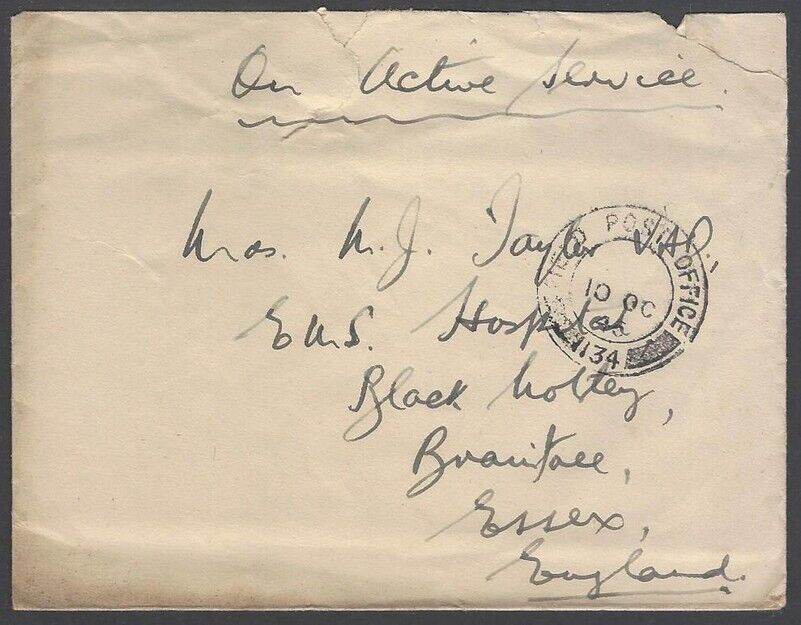 On Active Service.
Mrs. M. J. Taylor V.A.D.,
E.M.S. Hospital
Black Notley,
Braintree,
Essex,
England.
FIELD POST OFFICE
10 OC
45
134